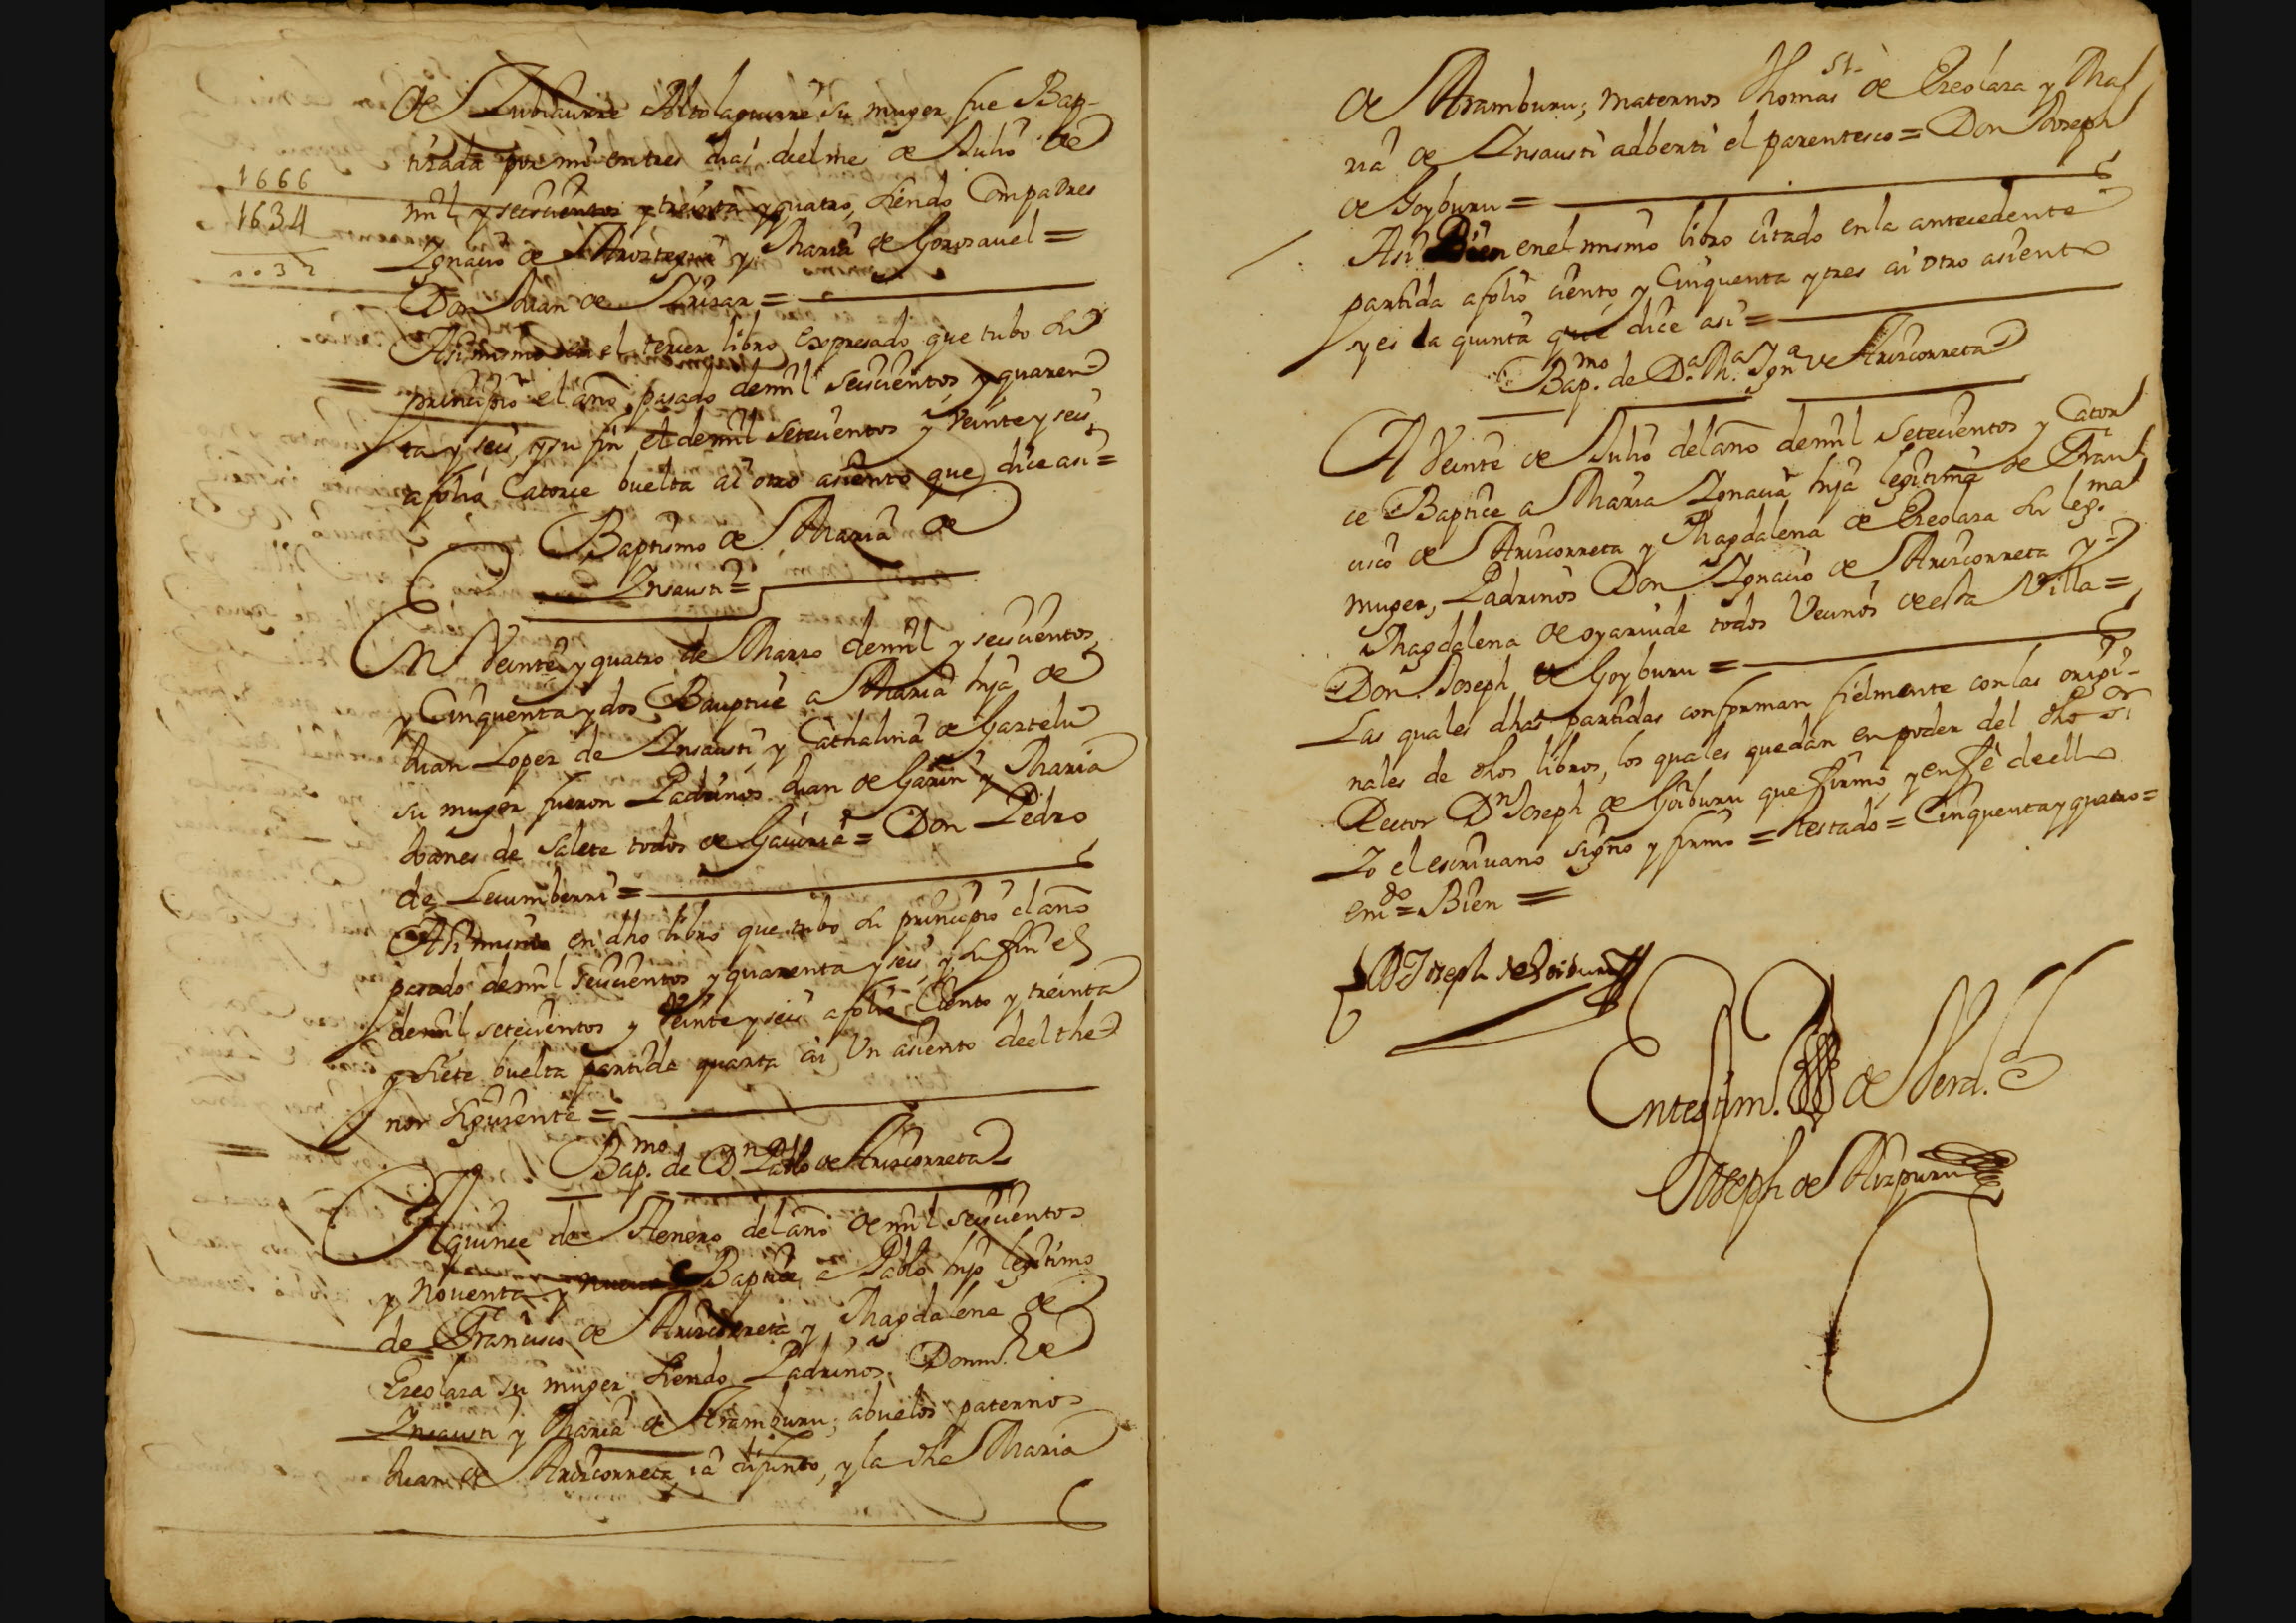 de Zubiaurre Altolaguirre su muger fue Bap-
tizada por mi en tres dias del mes de Julio de
1666
mil y seiscientos y treinta y quatro, siendo Compadres
1634
Ygnacio de Arostegui y Maria de Gorosauel =
0032
Don Juan de Yrizar =
Asimismo en el tercer libro expresado que tubo su
principio el año pasado de mil seiscientos y quaren-
ta y seis, y su fin el de mil setecientos y Veinte y seis
a folio Catorce buelta ai otro asiento que dice asi =
Baptismo de Maria de
Ynsausti =
En Veinte y quatro de Marzo de mil y seiscientos
y Cinquenta y dos Bauptice a Maria hija de
Juan Lopez de Ynsausti y Cathalina de Gaztelu
su muger fueron Padrinos Juan de Garin y Maria
Joanes de Salete todos de Gauiria = Don Pedro
de Lecumberri =
Asimismo en dho libro que tubo su principio el año
pasado de mil seiscientos y quarenta y seis, y su fin el
de mil setecientos y Veinte y seis a folio Ciento y treinta
y siete buelta partida quarta ai Vn asiento de el the-
nor siguiente =
Bap.mo de D.n Pablo de Arizcorreta
A quince de Henero del año de mil seiscientos
y nouenta y nueue Baptice a Pablo hijo legitimo
de Francisco de Arizcorreta y Magdalena de
Ereolaza su muger siendo Padrinos Domin.o de
Ynsausti y Maria de Aramburu; abuelos paternos
Juan de Arizcorreta ia difunto, y la dha Maria
de Aramburu; maternos Thomas de Ereolaza y Ma-
ria de Ynsausti adberti el parentesco = Don Joseph
de Goyburu =
Asi Bien en el mismo libro citado en la antecedente
partida a folio ciento y Cinquenta y tres ai otro asiento
y es la quinta que dice asi =
Bap.mo de D.a M.a Ygn.a de Arizcorreta
A Veinte de Julio del año de mil setecientos y Cator-
ce Baptice a Maria Ygnacia hija legitima de Fran-
cisco de Arizcorreta y Magdalena de Ereolaza su leg.ma
muger, Padrinos Don Ygnacio de Arizcorreta y
Magdalena de oyaruide todos Vecinos de esta Villa =
Don Joseph de Goyburu =
Las quales dhas partidas conforman fielmente con las origi-
nales de dhos libros, los quales quedan en poder del dho Sr
Rector Dn Joseph de Goiburu que firmo, y en fè de ello
Yo el escriuano signo y firmo = testado = Cinquenta y quatro =
em.do = Bien =
D Joseph de Goiburu
En testim.o de Verd.
Joseph de Aizpuru